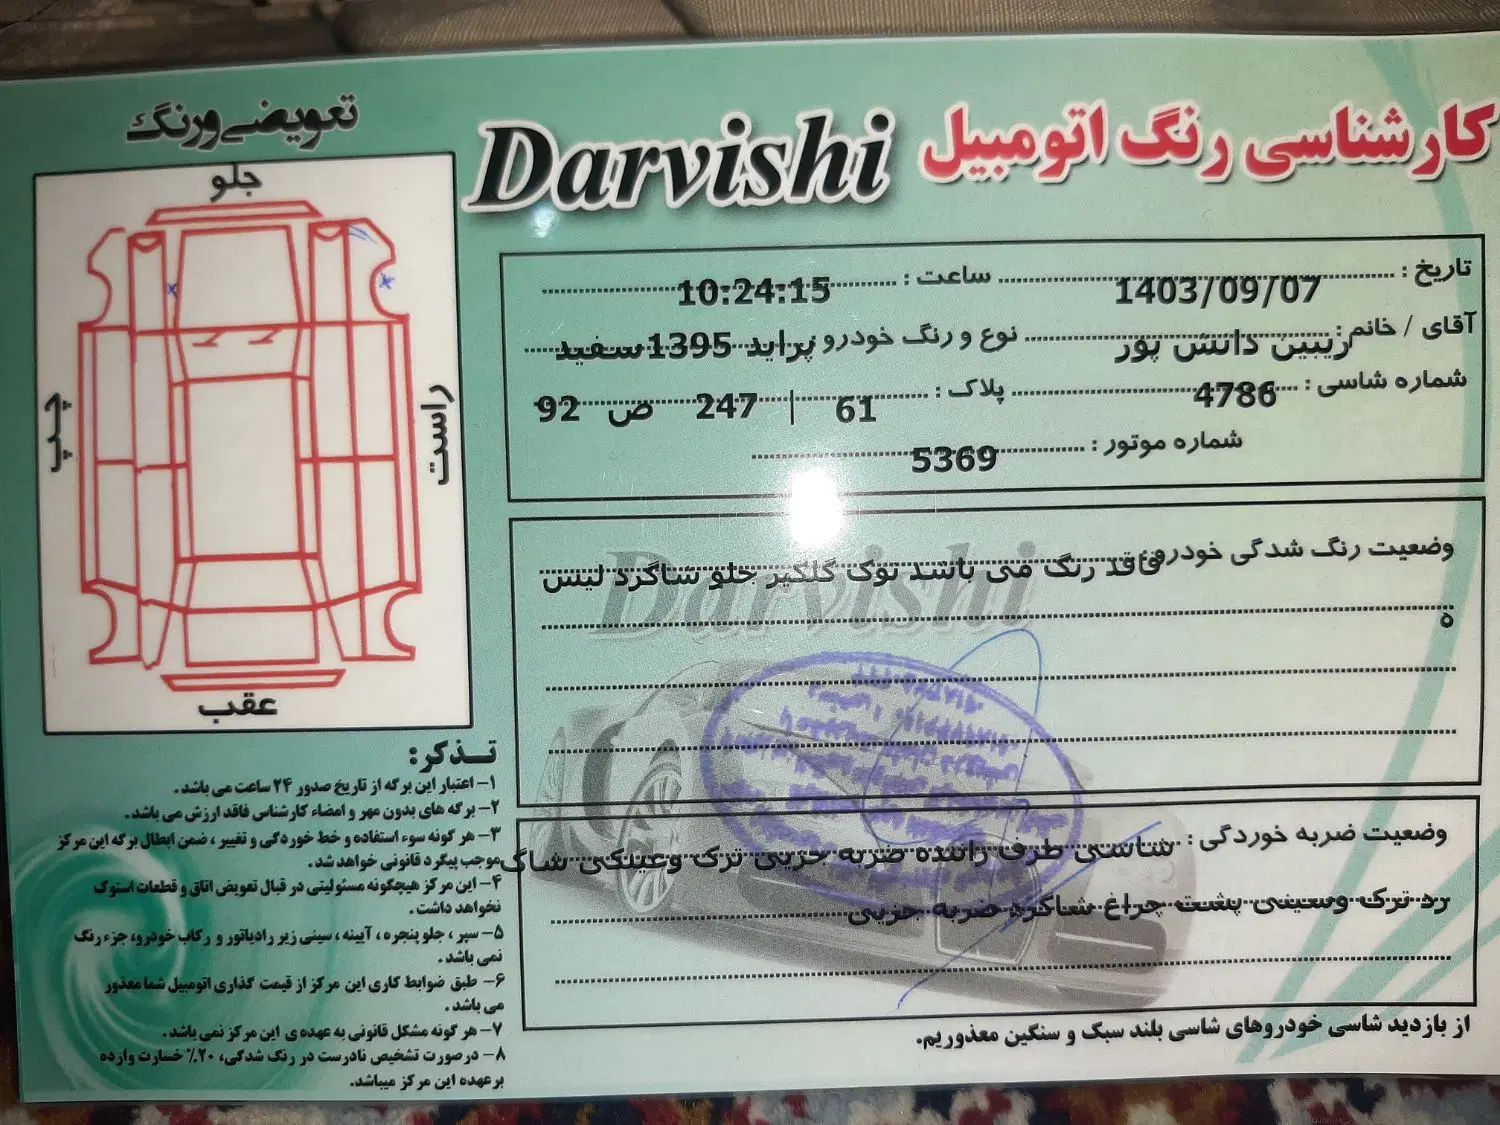 کارشناسی رنگ اتومبیل Darvishi
تاریخ : 1403/09/07 ساعت : 10:24:15
آقای / خانم : زیبین دانش پور نوع و رنگ خودرو : پراید 1395 سفید
شماره شاسی : 4786 پلاک : 61 | 247 ص 92
شماره موتور : 5369
وضعیت رنگ شدگی خودرو : فاقد رنگ می باشد نوک گلگیر جلو شاگرد لیس
ه
Darvishi
وضعیت ضربه خوردگی : شاسی طرف راننده ضربه جزیی ترک وعینکی شاگ
رد ترک وسینی پشت چراغ شاگرد ضربه جزیی
از بازدید شاسی خودروهای شاسی بلند سبک و سنگین معذوریم.
تعویضی و رنگ
جلو
راست
چپ
عقب
تـذکر:
۱- اعتبار این برگه از تاریخ صدور ۲۴ ساعت می باشد .
۲- برگه های بدون مهر و امضاء کارشناس فاقد ارزش می باشد .
۳- هر گونه سوء استفاده و خط خوردگی و تغییر ، ضمن ابطال برگه این مرکز
موجب پیگرد قانونی خواهد شد .
۴- این مرکز هیچگونه مسئولیتی در قبال تعویض اتاق و قطعات استوک
نخواهد داشت .
۵- سپر ، جلو پنجره ، آیینه ، سینی زیر رادیاتور و رکاب خودرو، جزء رنگ
نمی باشد .
۶- طبق ضوابط کاری این مرکز از قیمت گذاری اتومبیل شما معذور
می باشد .
۷- هر گونه مشکل قانونی به عهده ی این مرکز نمی باشد .
۸- درصورت تشخیص نادرست در رنگ شدگی، ۲۰٪ خسارت وارده
برعهده این مرکز میباشد.